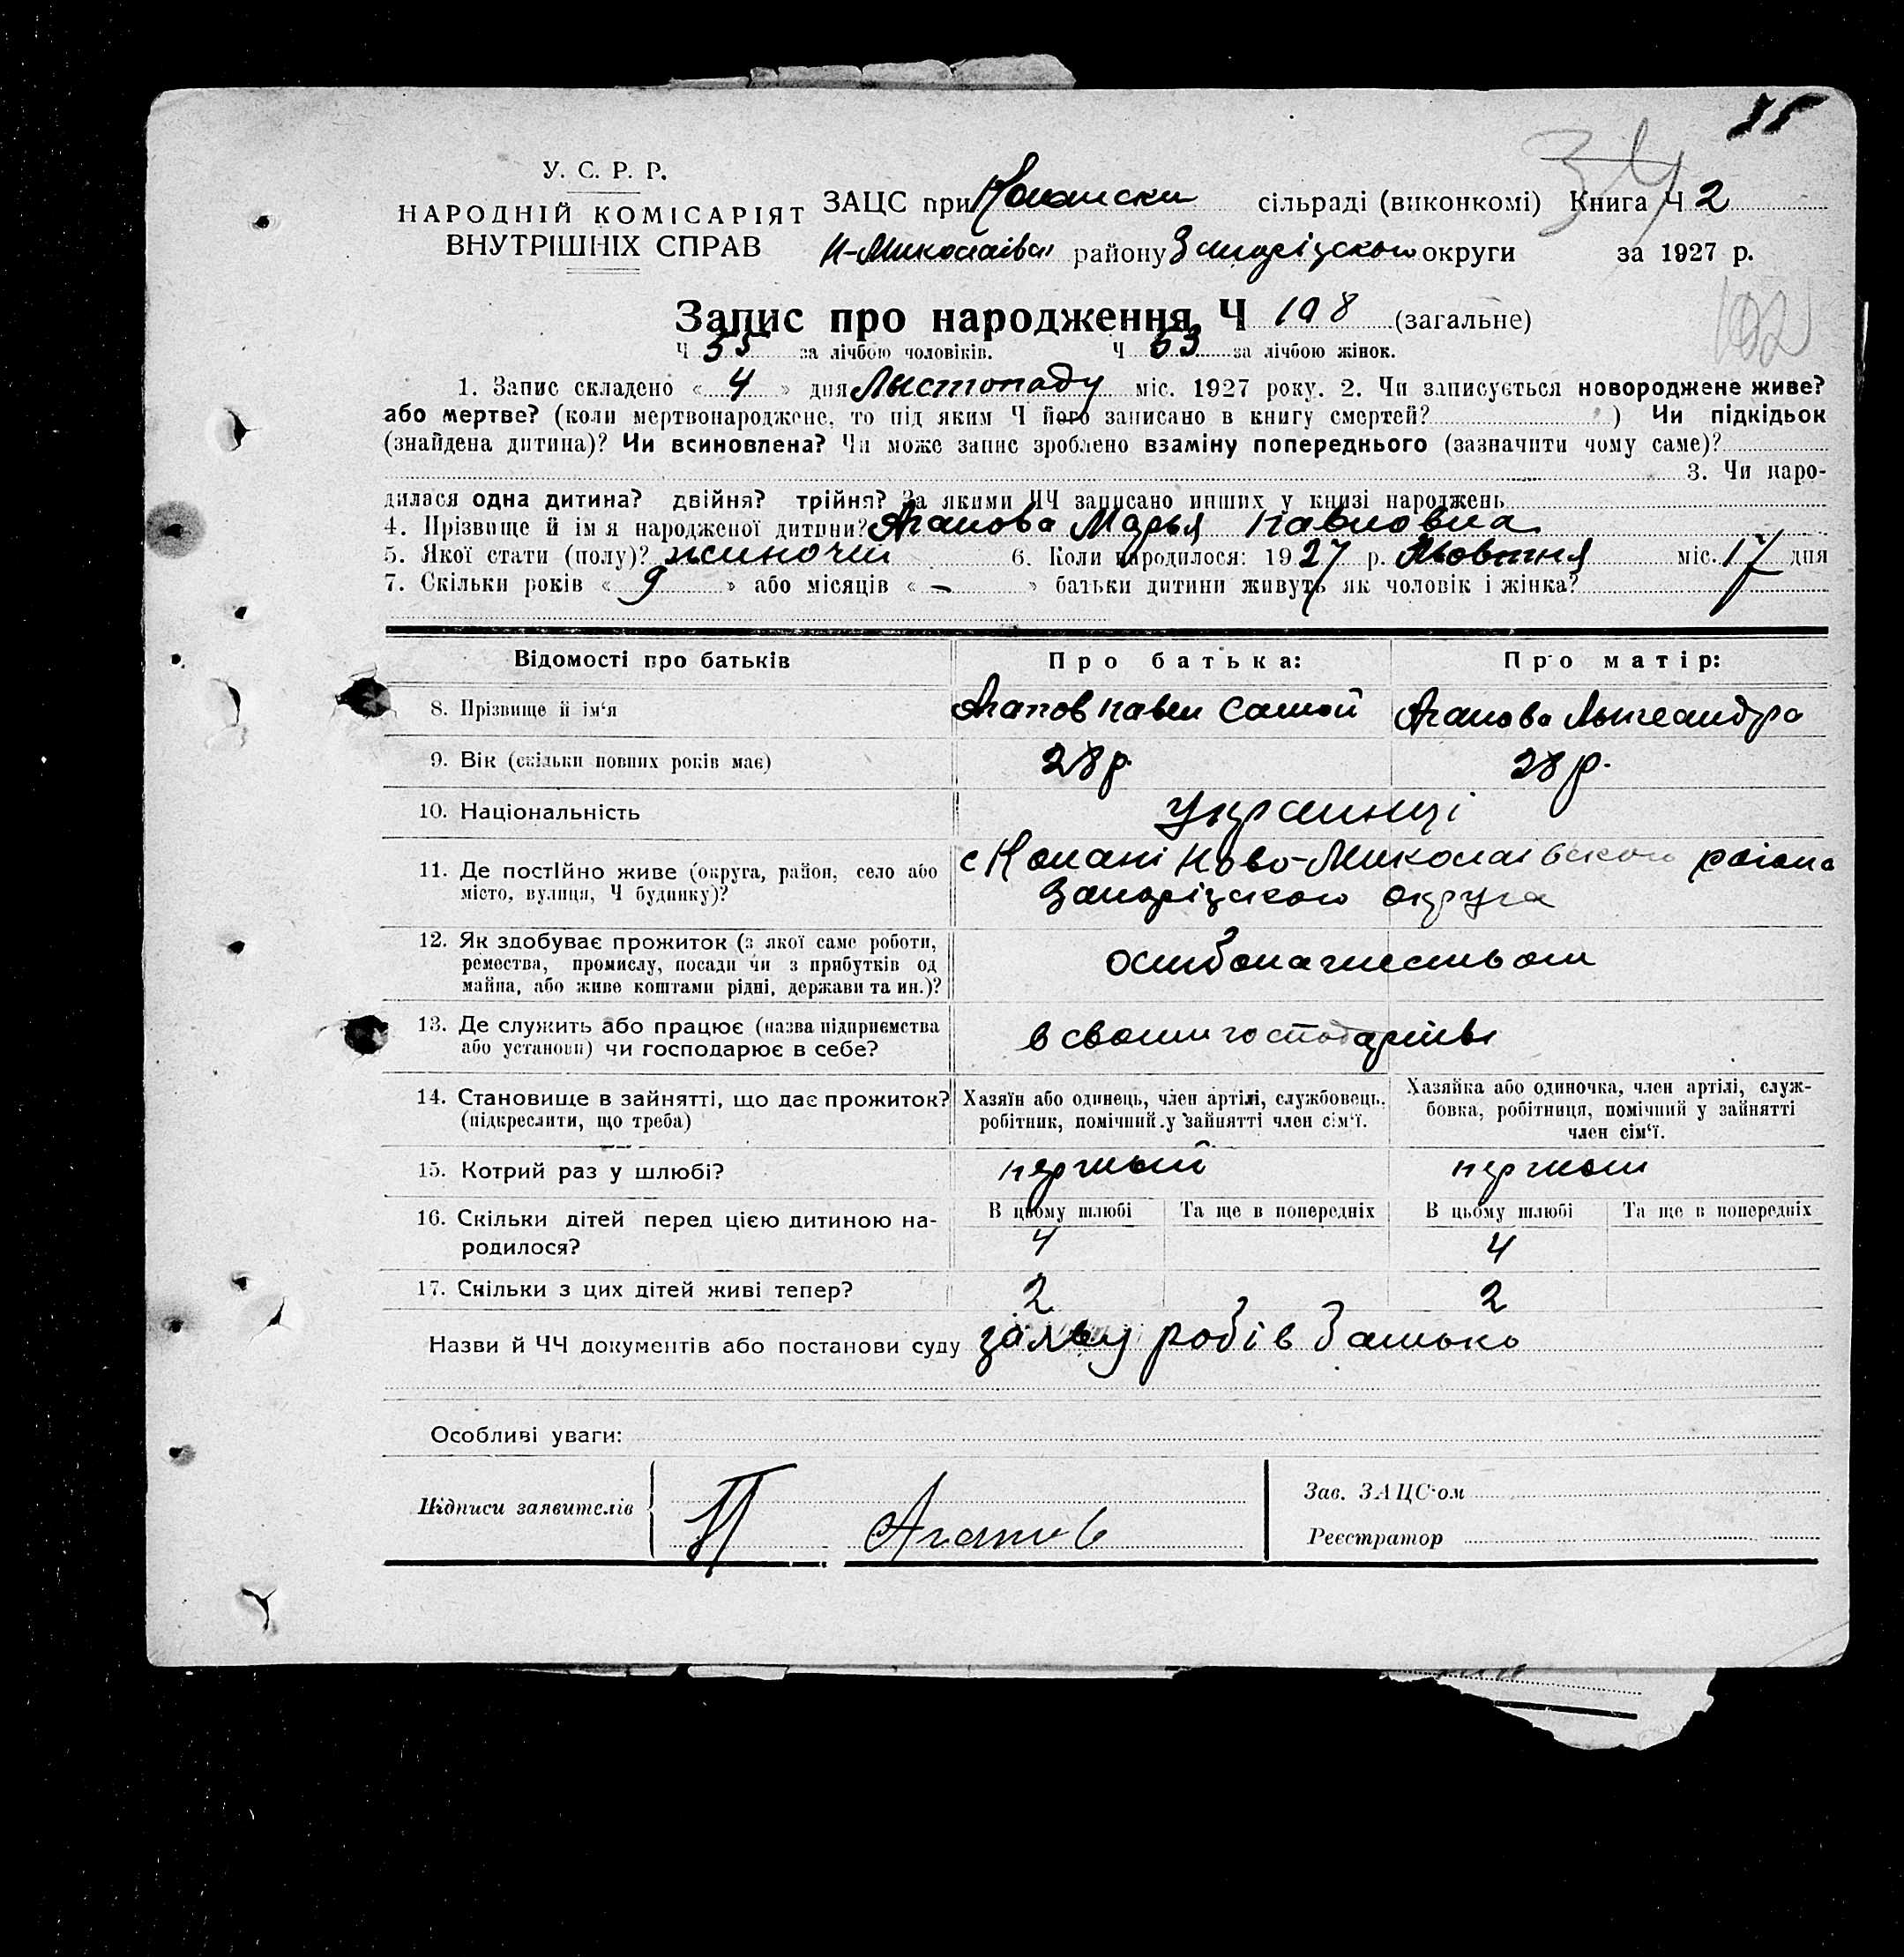 35
34
У. С. Р. Р.
НАРОДНІЙ КОМІСАРІЯТ
ВНУТРІШНІХ СПРАВ
ЗАЦС при сільраді (виконкомі) Книга Ч 2
Н-Миколаівск району Запоріцского округи за 1927 р.
102
Запис про народження Ч 108 (загальне)
Ч 55 за лічбою чоловіків. Ч 53 за лічбою жінок.
1. Запис складено « 4 » дня Лыстопаду міс. 1927 року. 2. Чи записується новороджене живе?
або мертве? (коли мертвонароджене, то під яким Ч його записано в книгу смертей? ) Чи підкідьок
(знайдена дитина)? Чи всиновлена? Чи може запис зроблено взаміну попереднього (зазначити чому саме)?
3. Чи наро-
дилася одна дитина? двійня? трійня? За якими ЧЧ записано инших у книзі народжень
4. Прізвище й ім'я народженої дитини? Агапова Марья Павловна
5. Якої стати (полу)? жиночи 6. Коли народилося: 1927 р. Жовтня міс. 17 дня
7. Скільки років « 9 » або місяців « – » батьки дитини живуть як чоловік і жінка?
Відомості про батьків Про батька: Про матір:
8. Прізвище й ім'я Агапов Павел Самой Агапова
9. Вік (скільки повних років має) 28 р. 28 р.
10. Національність Украинці
11. Де постійно живе (округа, район, село або с Копані Ново-Миколаівского раіона
місто, вулиця, Ч будинку)? Запоріцского округа
12. Як здобуває прожиток (з якої саме роботи,
ремества, промислу, посади чи з прибутків од
майна, або живе коштами рідні, держави та ин.)?
13. Де служить або працює (назва підприємства в своим
або установи) чи господарює в себе?
14. Становище в зайнятті, що дає прожиток? Хазяїн або одинець, член артілі, службовець, Хазяйка або одиночка, член артілі, служ-
(підкреслити, що треба) робітник, помічний у зайнятті член сім'ї. бовка, робітниця, помічний у зайнятті
член сім'ї.
15. Котрий раз у шлюбі? першый
16. Скільки дітей перед цією дитиною на- В цьому шлюбі Та ще в попередніх В цьому шлюбі Та ще в попередніх
родилося? 4 4
17. Скільки з цих дітей живі тепер? 2 2
Назви й ЧЧ документів або постанови суду заяву робів батько
Особливі уваги:
Підписи заявителів П Агапов
Зав. ЗАЦС'ом
Реєстратор